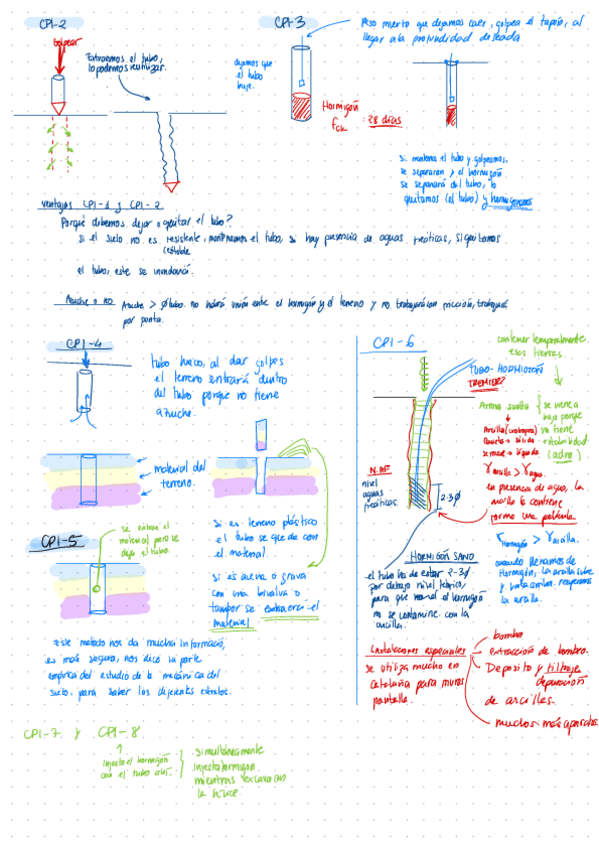 CPI-2
Golpear
Extraemos el tubo,
lo podemos reutilizar.
CPI-3
dejamos que
el tubo
baje.
Hormigón
fck = 28 días
Peso muerto que dejamos caer, golpea el tapón, al
llegar a la profundidad deseada
si mantiene el tubo y golpeamos,
se separaran y el hormigón
se separará del tubo, lo
quitamos (el tubo) y
Ventajas CPI-1 y CPI-2
Porqué debemos dejar o quitar el tubo?
si el suelo no es resistente, mantenemos el tubo, si hay presencia de aguas freáticas, si quitamos
estable
el tubo, este se inundará.
Azuche o no Azuche > Ø tubo. no habrá unión entre el hormigón y el terreno y no trabajará con fricción, trabajará
por punta.
CPI-4
tubo hueco, al dar golpes
el terreno entrará dentro
del tubo porque no tiene
azuche.
material del
terreno.
si es terreno plástico
el tubo se queda con
el material.
si es arena o grava
con una bivalva o
tambor se extraerá el
material
CPI-5
se extrae el
material pero se
deja el tubo.
Este metodo nos da mucha informació,
es más segura, nos dice la parte
empírica del estudio de la mecánica del
suelo. para saber los diferentes estratos.
CPI-6
contener temporalmente
esas tierras.
TUBO-HORMIGÓN
TREMIER?
Arena suelta
se viene a
bajo porque
no tiene
estabilidad
Arcilla
sólido
se mueve → líquido
γ arcilla > γ agua.
en presencia de agua, la
arcilla la contiene
forma una película
N.AF
nivel
aguas
freáticas
2-3Ø
γ hormigón > γ arcilla.
cuando llenamos de
hormigón, la arcilla sube
recuperamos
la arcilla.
HORMIGÓN SANO
el tubo ha de estar 2-3Ø
por debajo nivel teórico,
para que no el hormigón
no se contamine con la
arcilla.
Instalaciones especiales
se utiliza mucho en
Cataluña para muros
pantalla.
bomba
Extracción de bombeo.
Deposito y filtraje
depuración
de arcillas.
muchos más aparatos
CPI-7 y CPI-8
inyecta el hormigón
con el tubo ahí.
simultáneamente
inyecta hormigon
mientras excava
la hélice.